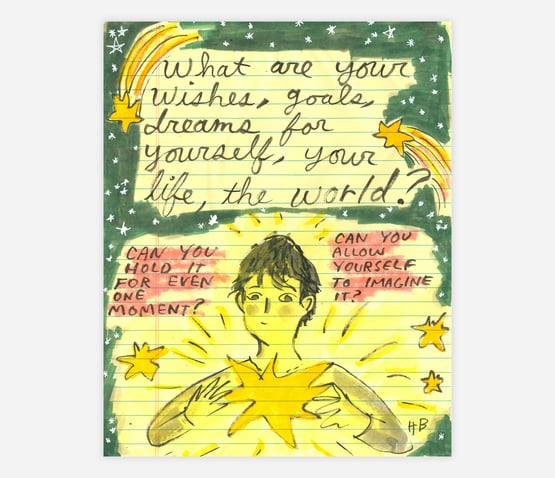 What are your
wishes, goals,
dreams for
yourself, your
life, the world?
CAN YOU
HOLD IT
FOR EVEN
ONE
MOMENT?
CAN YOU
ALLOW
YOURSELF
TO IMAGINE
IT?
HB